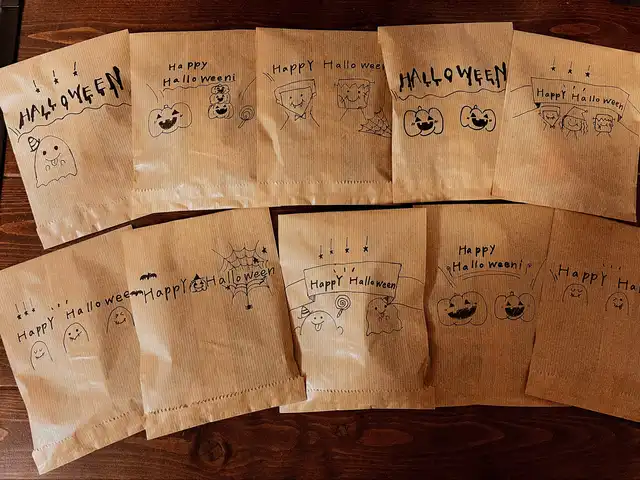 HALLOWEEN
Happy
Halloween!
Happy Hallowee
HALLOWEEN
Happy Halloween
Happy Hallowee
Happy Halloween
Happy Halloween
Happy
Halloween!
Happy Ha